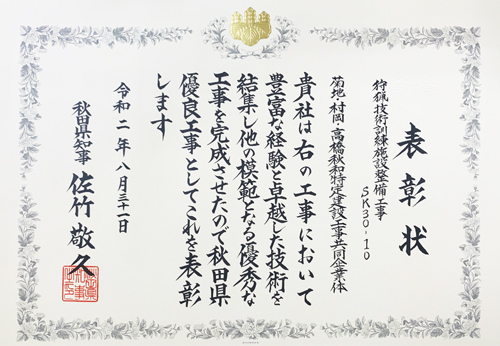 表彰状
狩猟技術訓練施設整備工事
SK30-10
菊地・村岡・高橋秋和特定建設工事共同企業体
貴社は右の工事において
豊富な経験と卓越した技術を
結集し他の模範となる優秀な
工事を完成させたので秋田県
優良工事としてこれを表彰
します
令和二年八月三十一日
秋田県知事 佐竹敬久